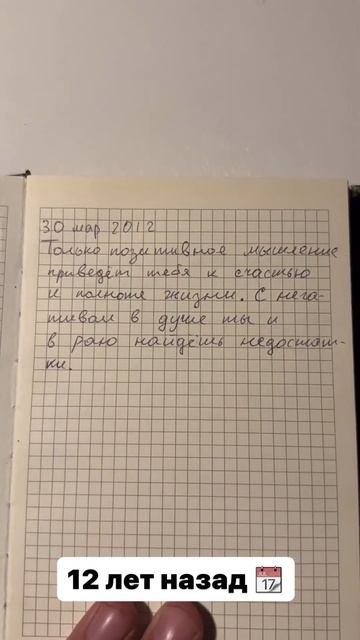 30 мар 2012
Только позитивное мышление
приведёт тебя к счастью
и полноте жизни. С нега-
тивом в душе ты и
в раю найдёшь недостат-
ки.
12 лет назад 📆